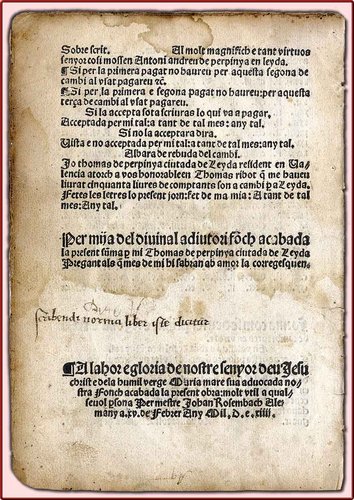 Sobre scrit. Al molt magnifich e tant virtuos
senyor cosi mossen Antoni andreu de perpinya en leyda.
¶ Si per la primera pagat no haureu per aquesta segona de
cambi al vsat pagareu ⁊c.
¶ Si per la primera e segona pagat no haureu: per aquesta
terça de cambi al vsat pagareu.
Si la accepta sota scriuras lo qui va a pagar.
Acceptada per mi tal: a tant de tal mes: any tal.
Si no la acceptara dira.
Vista e no acceptada per mi tal: a tant de tal mes: any tal.
Albara de rebuda del cambi.
Jo thomas de perpinya ciutada de Leyda resident en Va-
lencia atorch a vos honorable en Thomas ribot q̃ me haueu
liurat cinquanta liures de comptants son a cambi ꝑa Leyda.
Fetes les letres lo present jorn: fet de ma mia: A tant de tal
mes: Any tal.
Per mija del diuinal adiutori fõch acabada
la present sũma ꝑ mi Thomas de perpinya ciutada de Leyda
Pregant als q̃ mes de mi hi sabran ab amor la corregesquen.
scribendi norma liber iste dicitur
¶ A lahor e gloria de nostre senyor deu Jesu
christ e dela humil verge Maria mare sua aduocada no-
stra Fonch acabada la present obra: molt vtil a qual-
seuol ꝑsona Per mestre Johan Rosembach Ale-
many a .xv. de Febrer Any Mil .D. e .xiiii.